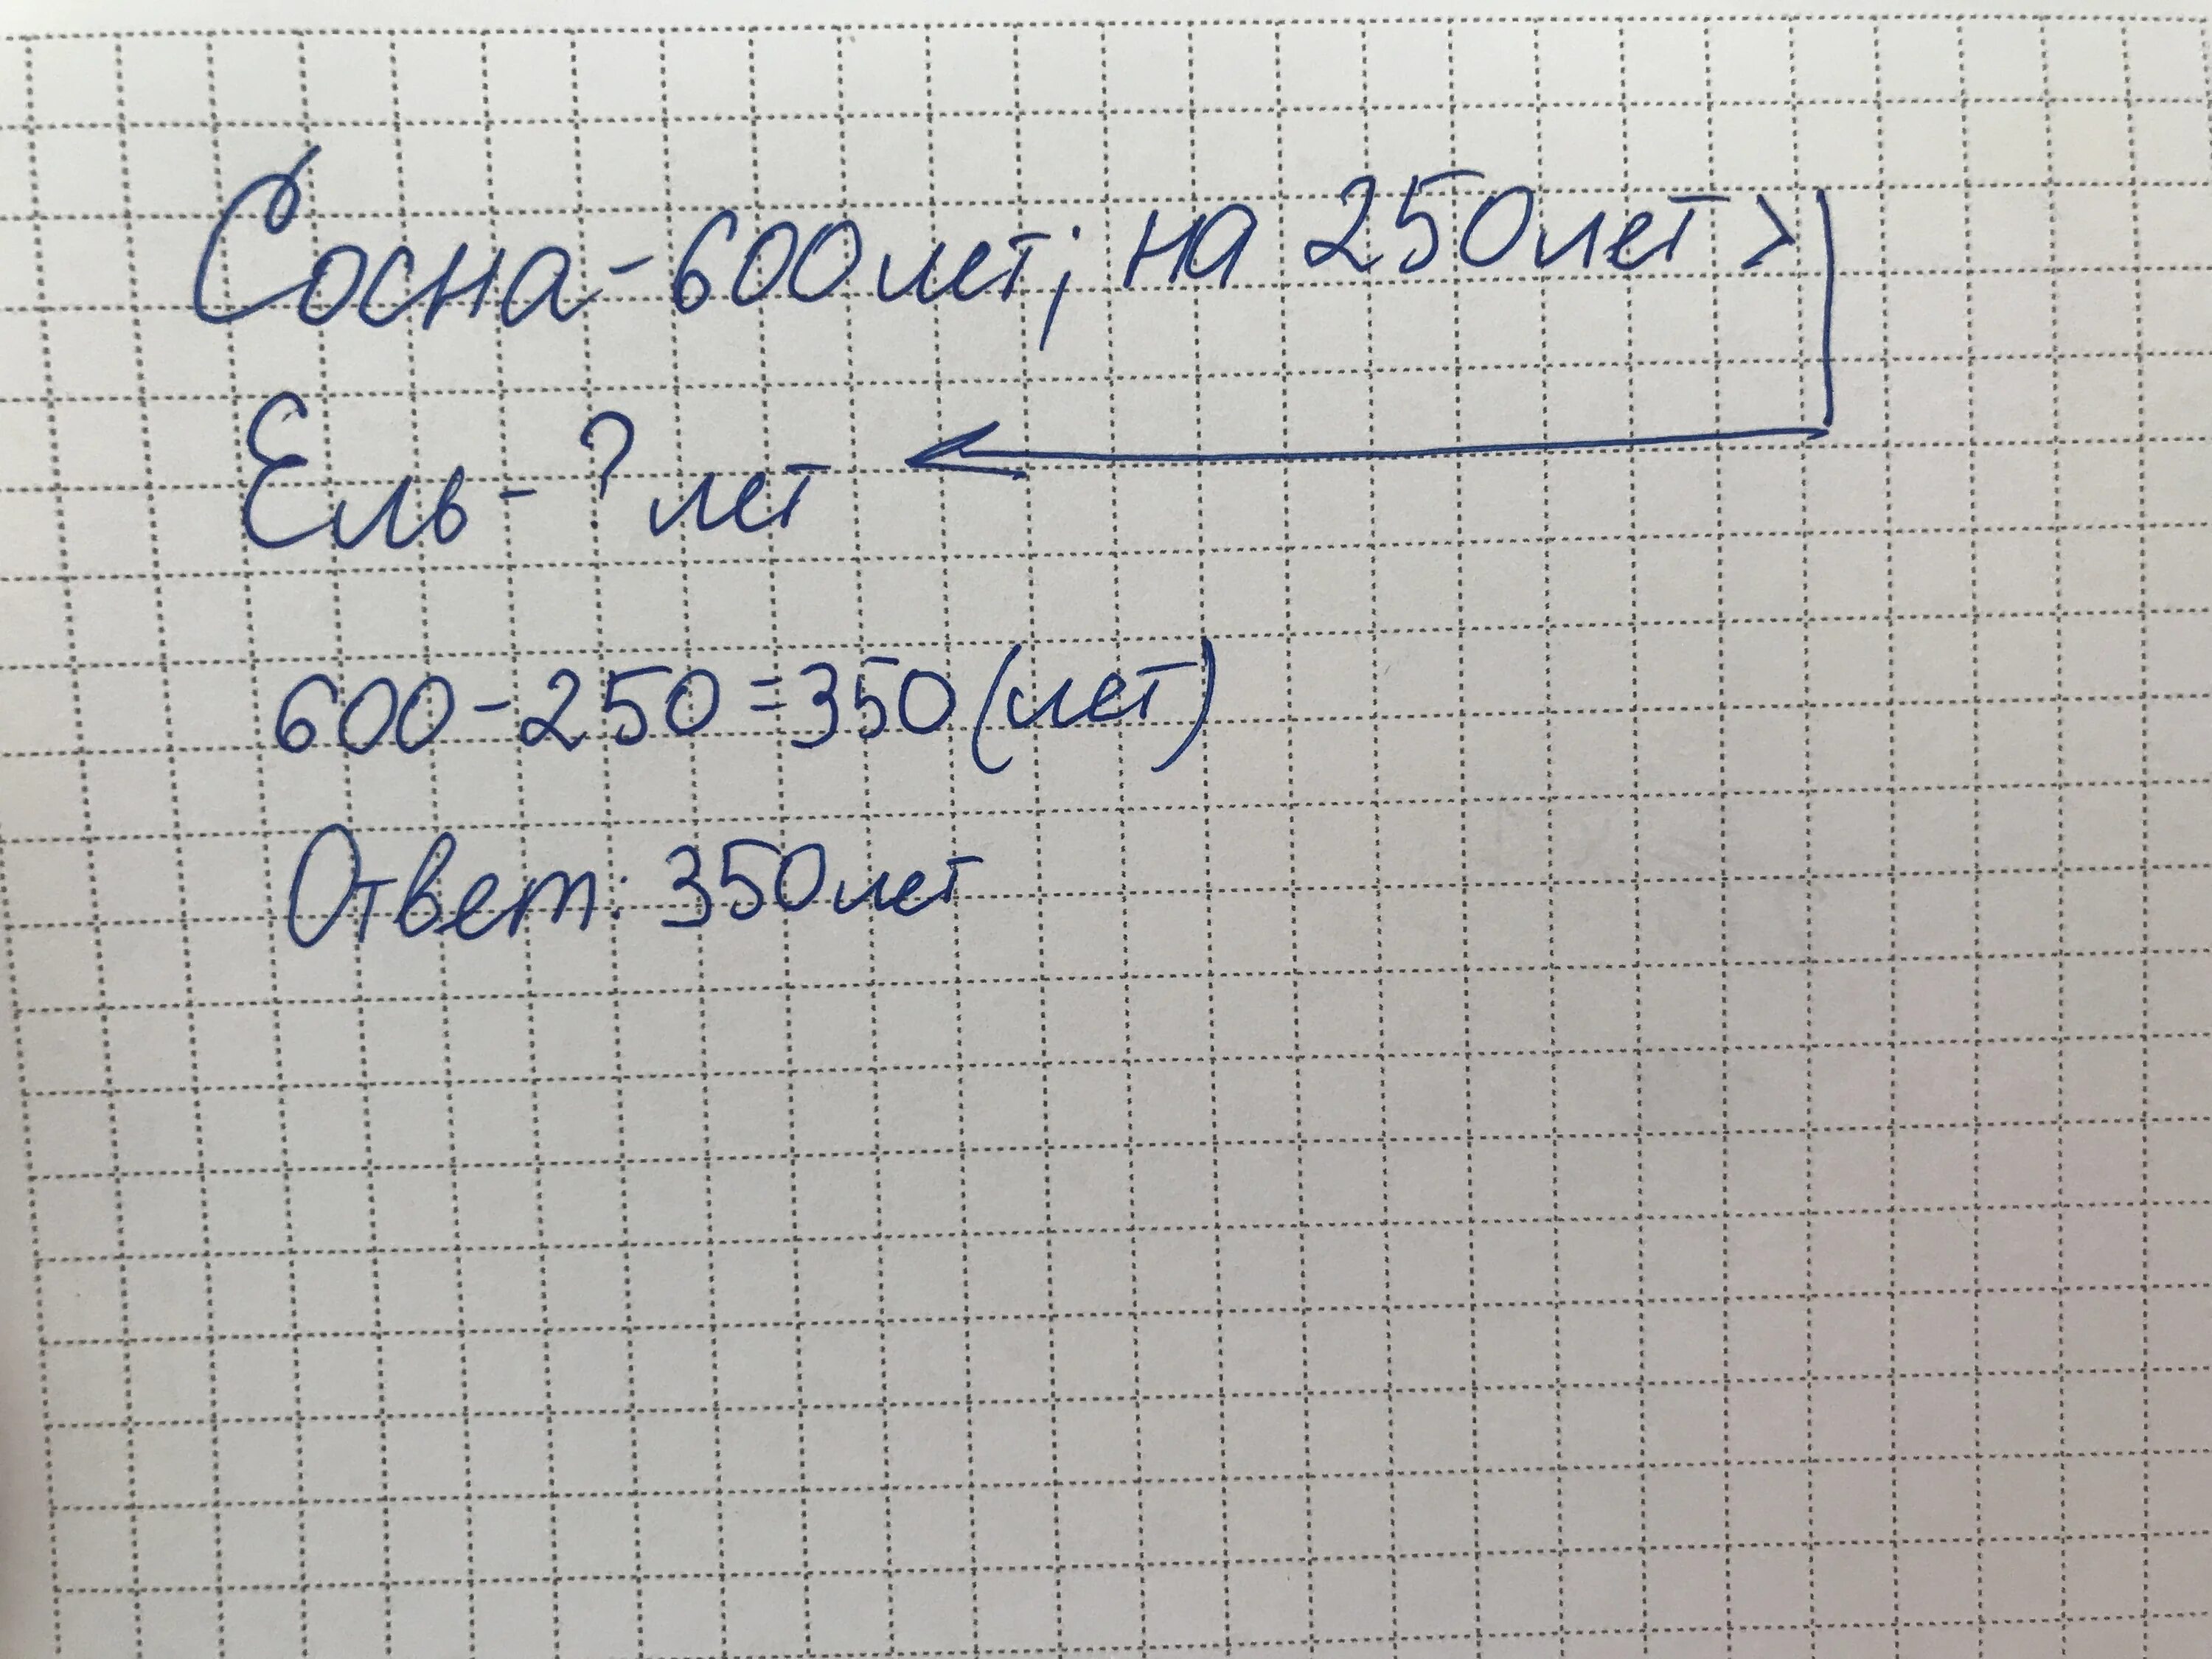 Сосна-600лет; на 250лет>
Ель-? лет
600-250=350(лет)
Ответ: 350лет